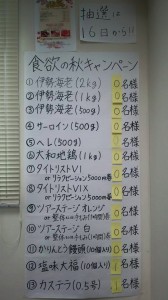 抽選は
16日から!!
食欲の秋キャンペーン
① 伊勢海老(2kg) 0名様
② 伊勢海老(1kg) 0名様
③ 伊勢海老(500g) 0名様
④ サーロイン(500g) 0名様
⑤ ヘレ(300g) 0名様
⑥ 大和地鶏(1kg) 0名様
⑦ タイトリストV1 0名様
or リラクゼーション5000円券
⑧ タイトリストV1X 0名様
or リラクゼーション5000円券
⑨ ツアーステージオレンジ 0名様
⑩ ツアーステージ 白 0名様
⑪ かりんとう饅頭(10個入り) 0名様
⑫ 塩味大福(10個入り) 1名様
⑬ カステラ(0.5号) 1名様